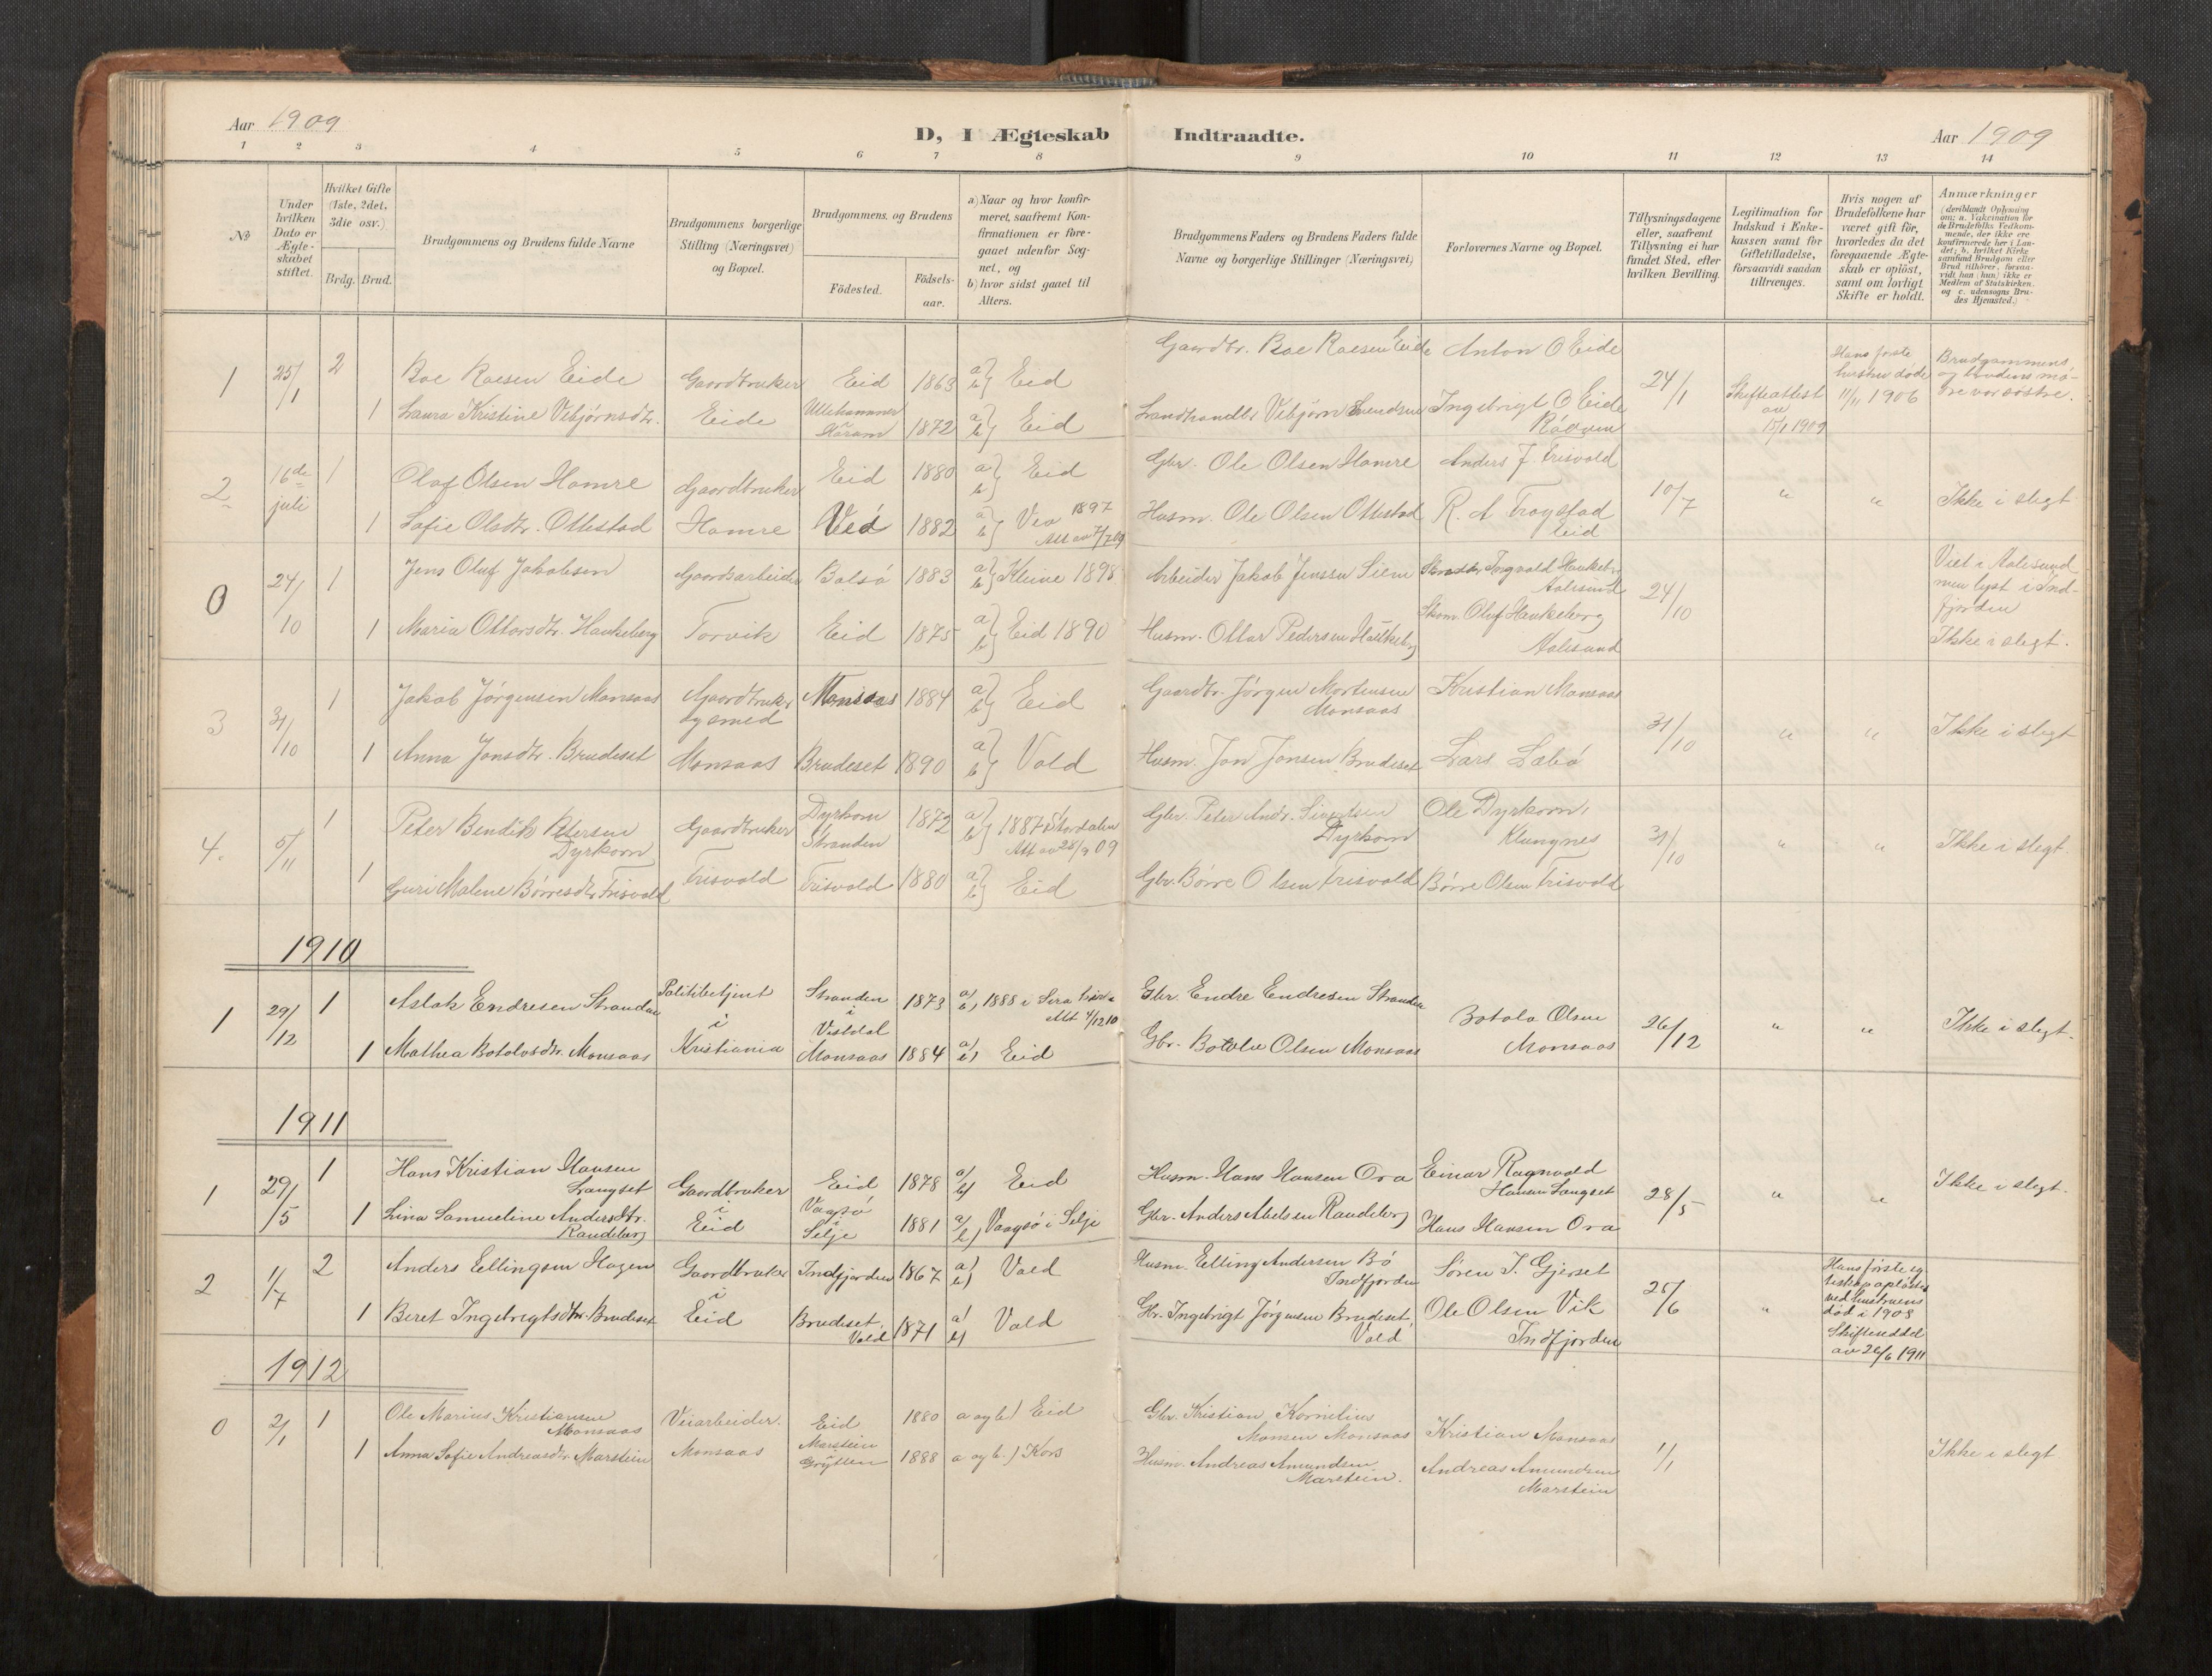 Aar 1909
D, I Ægteskab Indtraadte.
Aar 1909
1 2 3 4 5 6 7 8 9 10 11 12 13 14
No
Under hvilken Dato er Ægteskabet stiftet.
Hvilket Gifte (1ste, 2det, 3die osv.)
Brdg. Brud.
Brudgommens og Brudens fulde Navne
Brudgommens borgerlige Stilling (Næringsvei) og Bopæl.
Brudgommens og Brudens
Födested.
Födselsaar.
a) Naar og hvor konfirmeret, saafremt Konfirmationen er foregaaet udenfor Sognet, og
b) hvor sidst gaaet til Alters.
Brudgommens Faders og Brudens Faders fulde Navne og borgerlige Stillinger (Næringsvei)
Forlovernes Navne og Bopæl.
Tillysningsdagene eller, saafremt Tillysning ei har fundet Sted, efter hvilken Bevilling.
Legitimation for Indskud i Enkekassen samt for Giftetilladelse, forsaavidt saadan tiltrænges.
Hvis nogen af Brudefolkene har været gift før, hvorledes da det foregaaende Ægteskab er opløst, samt om lovligt Skifte er holdt.
Anmærkninger
(deriblandt Oplysning om: a. Vakcination for de Brudefolks Vedkommende, der ikke ere konfirmerede her i Landet; b. hvilket Kirkesamfund Brudgom eller Brud tilhörer, forsaavidt han (hun) ikke er Medlem af Statskirken. og c. udensogns Brudes Hjemsted.)
1 25/1 2 Boe Roesen Eide Gaardbruker Eid 1863 a) b) Eid Gaardbr. Boe Roesen Eide Anton O Eide 24/1 Skifteattest av 15/1 1909 Hans første hustru døde 11/11 1906 Brudgommens og brudens mødre var søstre.
1 Laura Kristine Vebjørnsdtr. Eide Ullahammer Haram 1872 a) b) Eid Landhandler Vebjørn Svendsen Ingebrigt O Eide Rødven
2 16de juli 1 Olaf Olsen Hamre Gaardbruker Eid 1880 a) b) Eid Gbr. Ole Olsen Hamre Anders J. Frisvold 10/7 " " Ikke i slegt
1 Sofie Olsdtr. Ottestad Hamre Veø 1882 a) b) Veø 1897 Att av 7/7 09 Husm. Ole Olsen Ottestad R. A Frogstad Eid
0 24/10 1 Jens Oluf Jakobsen Gaardsarbeider Bolsø 1883 a) b) Kleive 1898 Arbeider Jakob Jenssen Siem Ingvald Haukeberg Aalesund 24/10 Viet i Aalesund men lyst i Indfjorden Ikke i slegt.
1 Maria Ottarsdtr. Haukeberg Torvik Eid 1875 a) b) Eid 1890 Husm. Ottar Pedersen Haukeberg Skom. Oluf Haukeberg Aalesund
3 31/10 1 Jakob Jørgensen Monsaas Gaardbruker og smed Monsaas 1884 a) b) Eid Gaardbr. Jørgen Mortensen Monsaas Kristian Monsaas 31/10 " " Ikke i slegt
1 Anna Jonsdtr. Brudeset Monsaas Brudeset 1890 a) b) Vold Husm. Jon Jonsen Brudeset Lars Labø
4. 5/11 1 Peter Bendik Petersen Dyrkorn Gaardbruker Dyrkorn Stranden 1872 a) b) 1887 i Stordalen Att av 28/9 09 Gbr. Peter Andr. Sivertsen Dyrkorn Ole Dyrkorn, Klungnes 31/10 " " Ikke i slegt.
1 Guri Malene Børresdtr Frisvold Frisvold Frisvold 1880 a) b) Eid Gbr. Børre Olsen Frisvold Børre Olsen Frisvold
1910
1 29/12 1 Aslak Endresen Stranden Politibetjent i Kristiania Stranden i Vistdal 1873 a) b) 1888 i Sira kirke Att 4/12 10 Gbr. Endre Endresen Stranden Botolv Olsen Monsaas 26/12 " " Ikke i slegt.
1 Mathea Botolvsdtr. Monsaas Monsaas 1884 a) b) Eid Gbr. Botolv Olsen Monsaas
1911
1 29/5 1 Hans Kristian Hansen Langset Gaardbruker i Eid Eid 1878 a) b) Eid Husm. Hans Hansen Ora Einar Ragnvald Hansen Langset 28/5 " " Ikke i slegt.
1 Lina Samueline Andersdtr. Raudeberg Vaagsø i Selje 1881 a) b) Vaagsø i Selje Gbr. Anders Abelsen Raudeberg Hans Hansen Ora
2 1/7 2 Anders Ellingsen Hagen Gaardbruker i Eid Indfjorden 1867 a) b) Vold Husm. Elling Andersen Bø Indfjorden Søren J. Gjerset 25/6 " Hans første egteskap opløstes ved hustruens død i 1908 Skifteseddel av 26/6 1911
1 Beret Ingebrigtsdtr. Brudeset Brudeset, Vold 1871 a) b) Vold Gbr. Ingebrigt Jørgensen Brudeset, Vold Ole Olsen Vik Indfjorden
1912
0 2/1 1 Ole Marius Kristiansen Monsaas Veiarbeider. Eid 1880 a og b) Eid Gbr. Kristian Kornelius Monsen Monsaas Kristian Monsaas 1/1 Ikke i slegt
1 Anna Sofie Andreasdtr. Marstein Monsaas Marstein Grytten 1888 a og b) Kors Husm. Andreas Amundsen Marstein. Andreas Amundsen Marstein